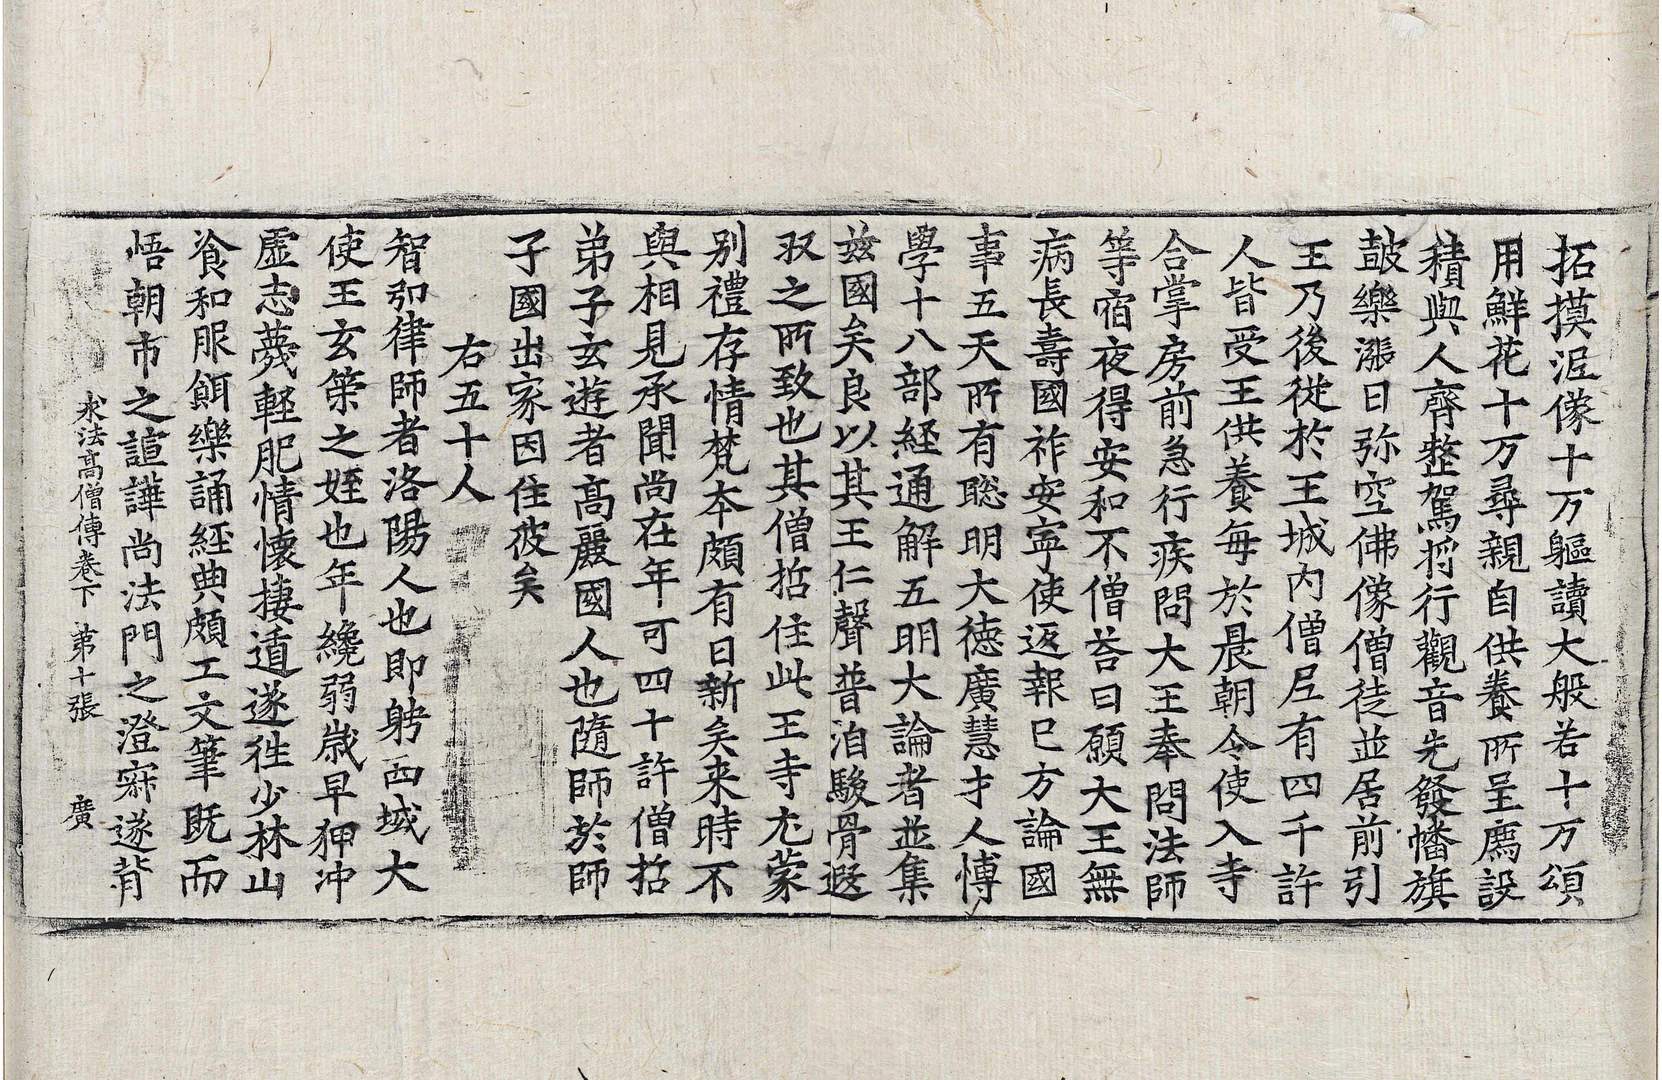 拓摸泥像十万軀讀大般若十万頌
用鮮花十万尋親自供養所呈薦設
積與人齊整駕将行觀音先發幡旗
鼓樂漲日弥空佛像僧徒並居前引
王乃後従於王城内僧尼有四千許
人皆受王供養每於晨朝令使入寺
合掌房前急行疾問大王奉問法師
等宿夜得安和不僧荅曰願大王無
病長壽國祚安寧使返報已方論國
事五天所有聡明大德廣慧才人愽
學十八部経通解五明大論者並集
兹國矣良以其王仁聲普洎駿骨遐
収之所致也其僧哲住此王寺尤蒙
别禮存情梵夲頗有日新矣来時不
與相見承聞尚在年可四十許僧哲
弟子玄遊者高麗國人也隨師於師
子國出家因住彼矣
右五十人
智弘律師者洛陽人也即聘西域大
使王玄策之姪也年纔弱歳早狎冲
虚志蔑軽肥情懷棲遁遂徃少林山
飡和服餌樂誦經典頗工文筆既而
悟朝市之諠譁尚法門之澄寂遂背
求法高僧傳卷下 第十張 廣